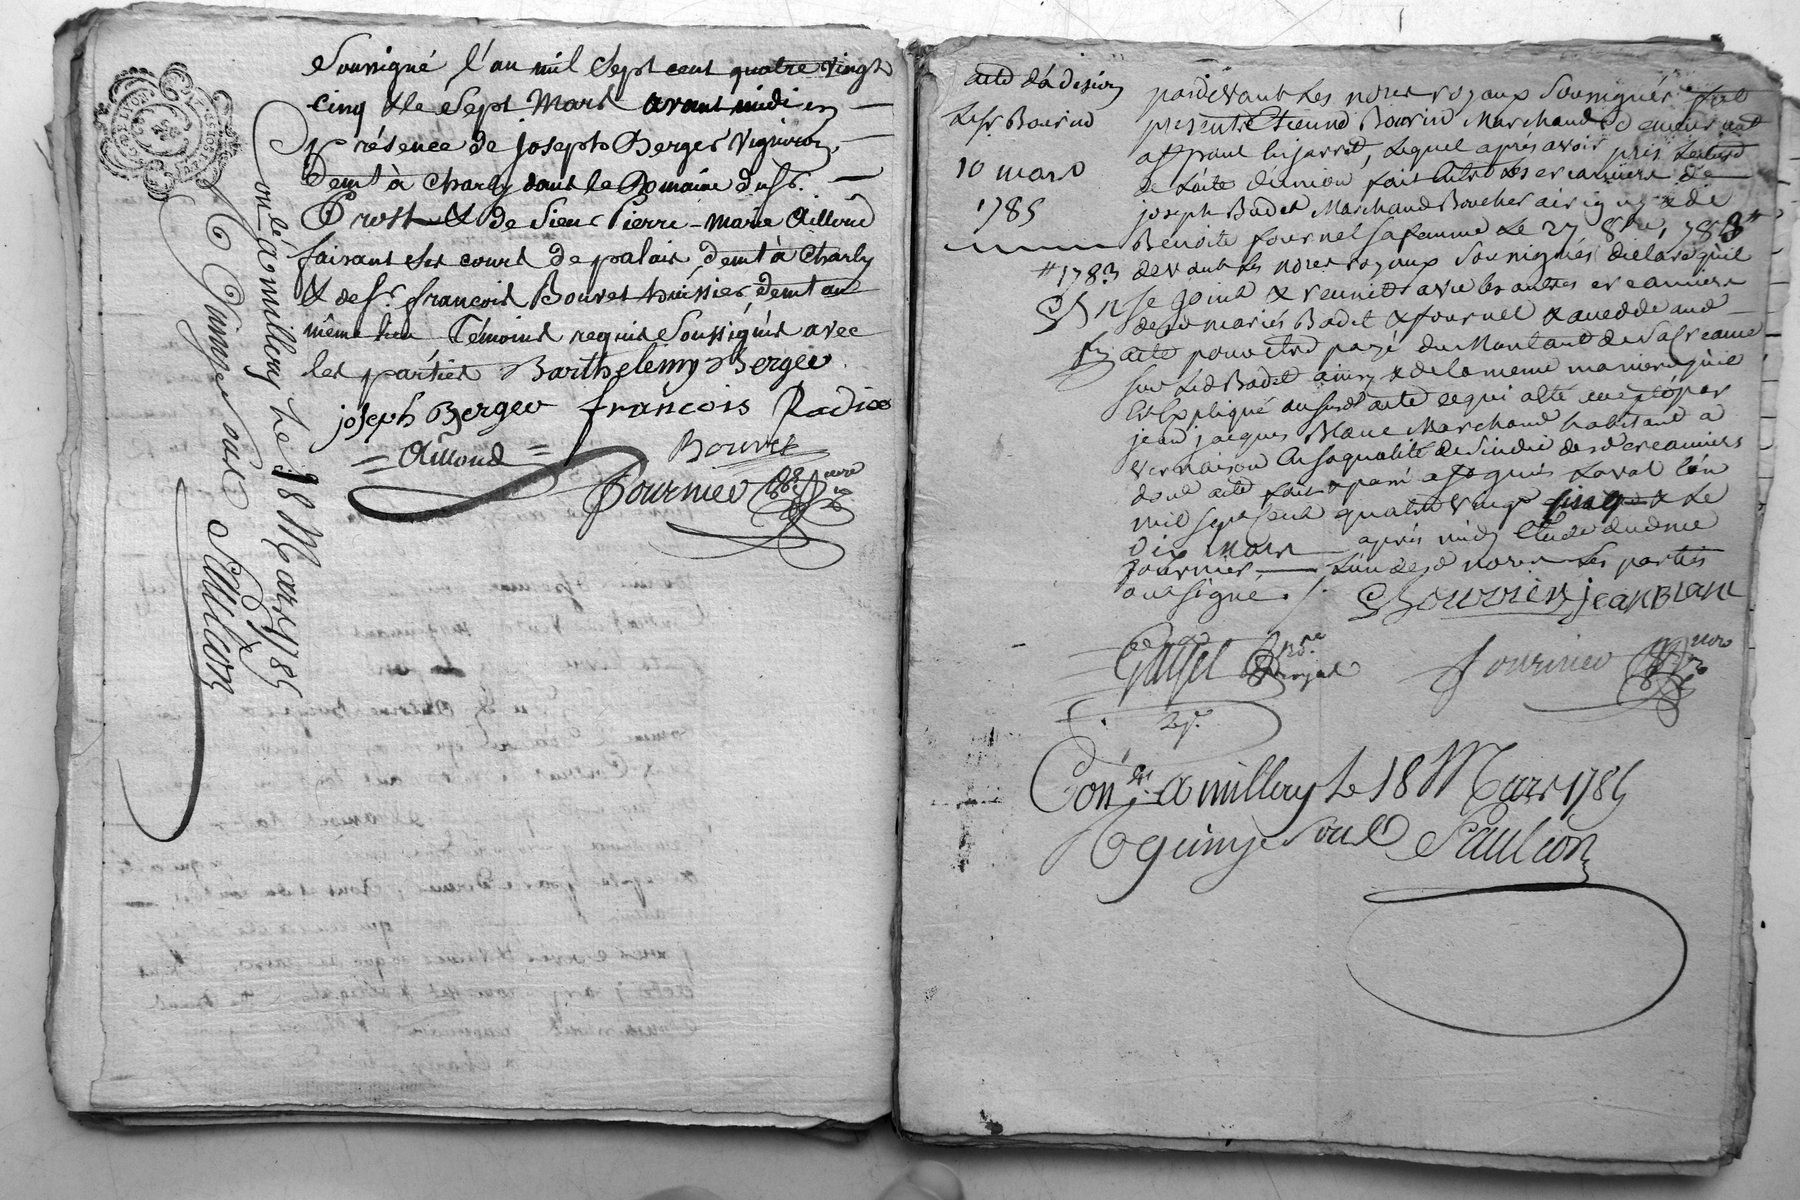 Soussigné l'an mil sept cent quatre vingt
cinq & le sept Mars avant midi en
présence de joseph Berger Vigneron,
demt à Charly dans le Domaine du Sr.
Prost & de Sieur Pierre-Marie Ailloud
faisant ses cours de palais, demt à Charly
& de Sr. françois Bouvet huissier, demt au
même lieu Témoins requis Soussignés avec
les parties Barthelemy Berger
joseph Berger françois Radix
Ailloud Bouvet
fournier
a millery le 18 Mars 1785
quinze sols Paulcon
acte d'adésion
Le Sr Bourin
10 mars
1785
pardevant les nores royaux Soussignés fut
présent Etienne Bourin Marchand demeurant
a St paul en jarret, lequel après avoir pris lecture
de l'acte d'union fait entre les créanciers de
joseph Badet Marchand Boucher a irigny & de
Benoite fournel sa femme le 27 8bre, 1783
# 1783 devant les nores royaux Soussignés déclare qu'il
se joint & reunit avec les autres créanciers
desd mariés Badet & fournel & adhère aud
acte pour être payé du Montant de sa créance
sur led Badet ainsy & de la meme maniere qu'il
est Expliqué au susd acte ce qui a été accepté par
jean jacques Blanc Marchand habitant a
vernaison en sa qualité de sindic desd créanciers
dont acte fait & passé a St genis Laval l'an
mil sept cent quatre vingt cinq & le
dix mars après midy Etude dudme
fournier l'un desd nores les parties
ont signé.
Bourrin jean Blanc
fournier
Conlé a millery le 18 Mars 1785
R quinze sols Paulcon